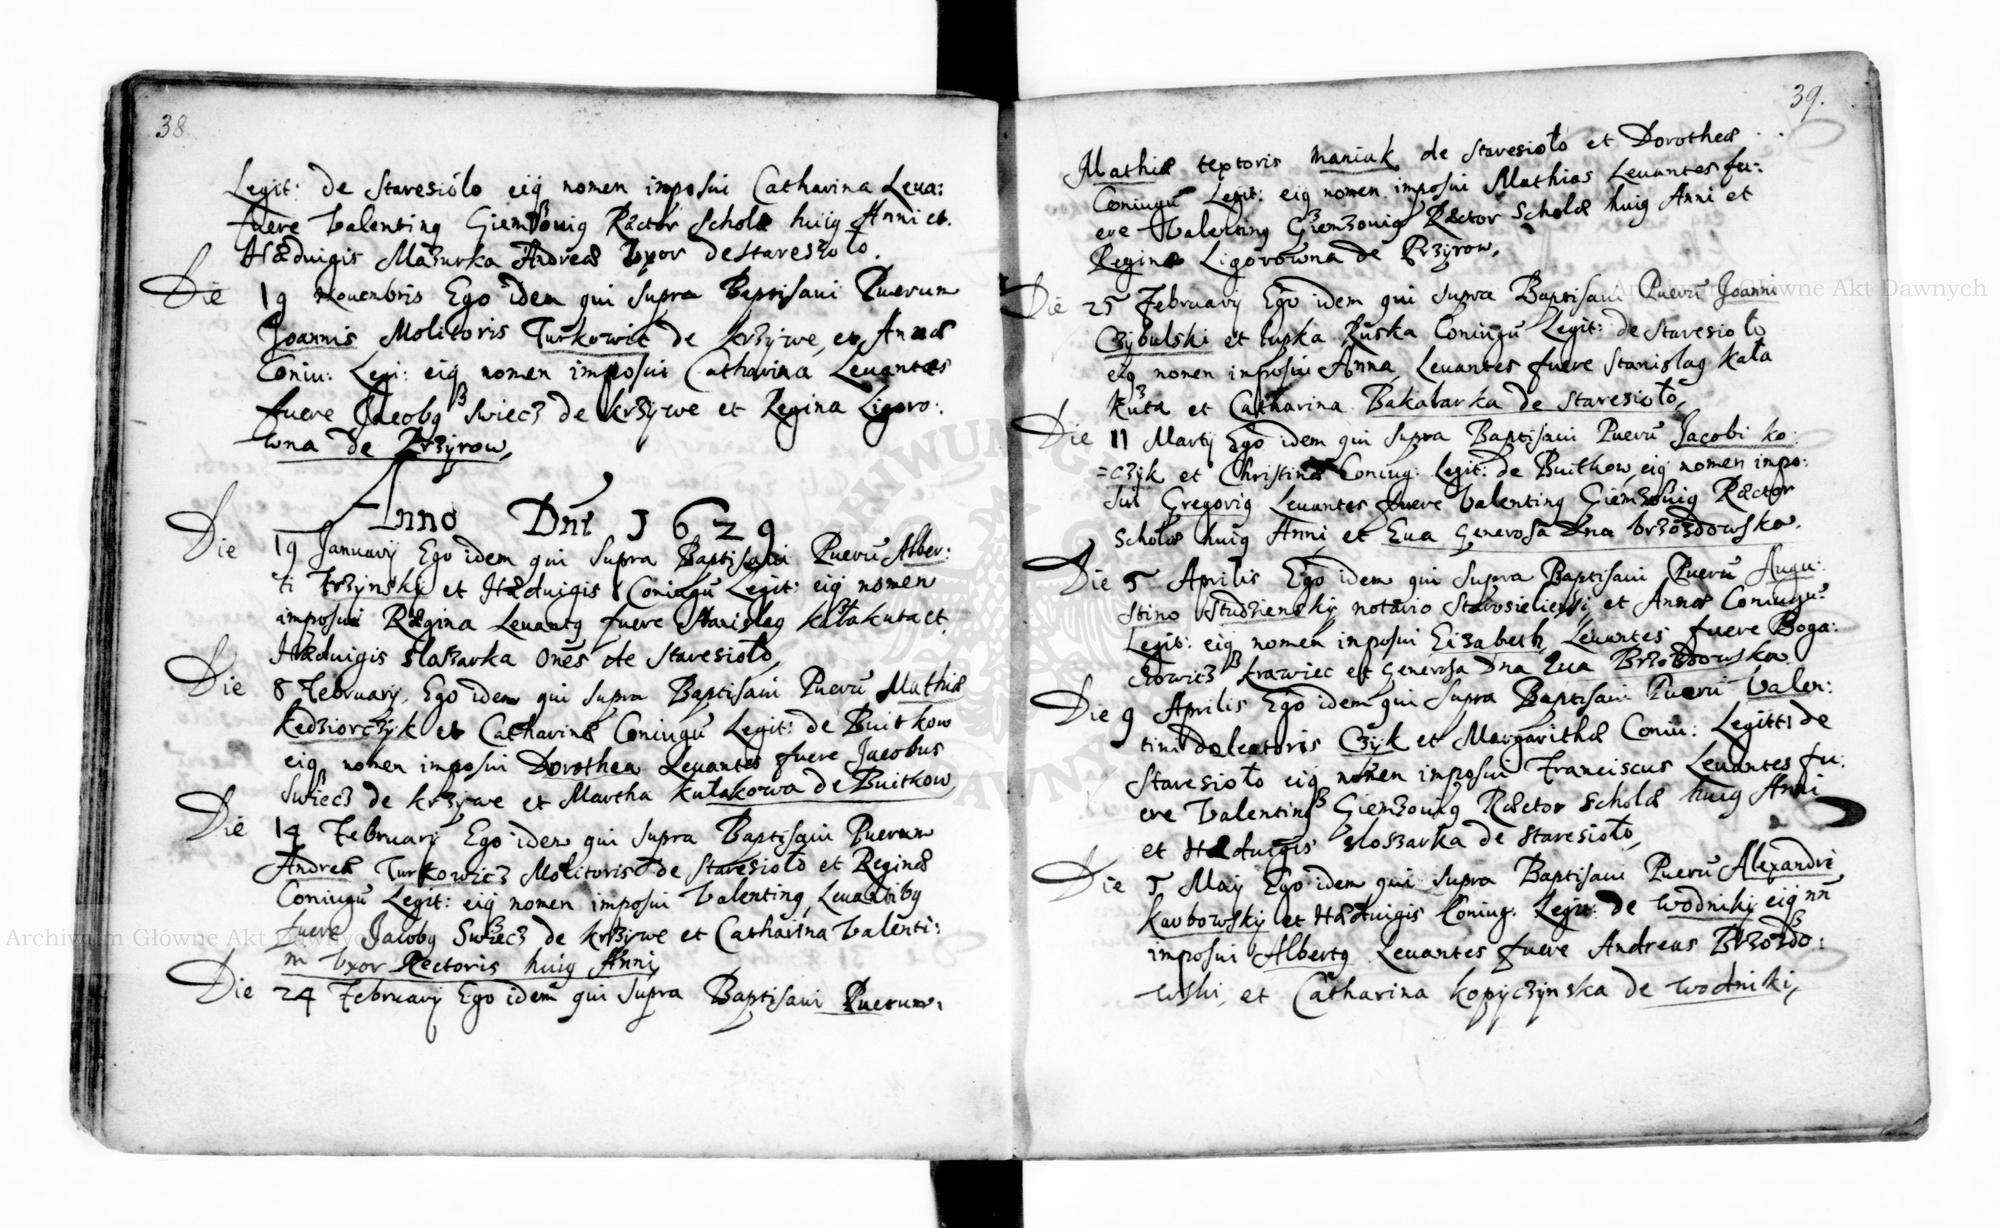 38
Legit: de Staresiólo eiq nomen imposui Catharina Leua:
fuere Valentinq Giemzouiq Ræctor Scholæ huiq Anni et.
Hæduigis Mazurka Andreæ Vxor de Stareszoło.
Die 19 Nouenbris Ego idem qui supra Baptisaui Puerum
Joannis Molitoris Turkowic de krzywe, et Annæ
Coniu: Legi: eiq nomen imposui Catharina Leuantes
fuere Jacobq Swiecz de krzywe et Regina Ligoro:
wna de Przyrow,
Anno Dni 1629
Die 19 Januarij Ego idem qui supra Baptisaui Puerũ Alber:
ti Trzynskij et Hæduigis Coniugũ Legit: eiq nomen
imposui Rægina Leuantq fuere Stanislaq kałakuta et
Hæduigis slaszarka Onẽs de Staresioło,
Die 8 February, Ego idem qui supra Baptisaui Puerũ Mathiæ
kedziorczyk et Catharinæ Coniugũ Legit: de Buitkow
eiq nomen imposui Dorothea Leuantes fuere Jacobus
Swiecz de krzywe et Martha kułakowa de Buitkow
Die 14 Februarij Ego idem qui supra Baptisaui Puerum
Andreæ Turkowicz Molitoris de Staresioło et Reginæ
Coniugũ Legit: eiq nomen imposui Valentinq, Leuantibq
fuere Jacobq Swiecz de krzywe et Catharina Valenti:
ni Vxor Rectoris huiq Anni,
Die 24 Februarij Ego idem qui supra Baptisaui Puerum:
39.
Mathiæ textoris Maniak de Staresioło et Dorotheæ
Coniugũ Legit: eiq nomen imposui Mathias Leuantes fu:
ere Valentinq Giemzouiq Ræctor Scholæ huiq Anni et
Reginæ Ligorowna de Przyrow,
Die 25 Februarij Ego idem qui supra Baptisaui Puerũ Joanni
Czybulski et łupka Ruska Coniugũ Legit: de Staresioło
eiq nomen inposui Anna, Leuantes fuere Stanislaq kała
kuta et Catharina Bakałarka de Staresioło,
Die 11 Martij Ego idem qui supra Baptisaui Puerũ Jacobi ko:
=czyk et Christinæ Coniug: Legit: de Buitkow, eiq nomen impo:
sui Gregoriq Leuantes fuere Valentinq Giemzouiq Ræctor
Scholæ huiq Anni et Eua Generosa Dna brzozdowska.
Die 5 Aprilis Ego idem qui supra Baptisaui Puerũ Augu:
stino Studzienskij notario Starosielienskij et Annæ Coniugũ:
Legit: eiq nomen inposui Eizabeth, Leuantes fuere Boga:
krawiec et Generosa Dna Eua Brzozdowska.
Die 9 Aprilis Ego idem qui supra Baptisaui Puerũ Valen:
tini doleatoris Czyk et Margarithæ Coniu: Legitt: de
Staresioło eiq nomen imposui Franciscus Leuantes fu:
ere Valentinq Giemzouiq Ræctor Scholæ huiq Anni
et Hæduigis sloszarka de Staresioło,
Die 5 Maij Ego idem qui supra Baptisaui Puerũ Alexandri
karbowskij et Hæduigis Coniug: Legit: de Wodniki, eiq nñ
imposui Albertq Leuantes fuere Andreas Brzozdo:
wski, et Catharina kopyczynska de Wodniki,
Archiwum Główne Akt Dawnych
Archiwum Główne Akt Dawnych